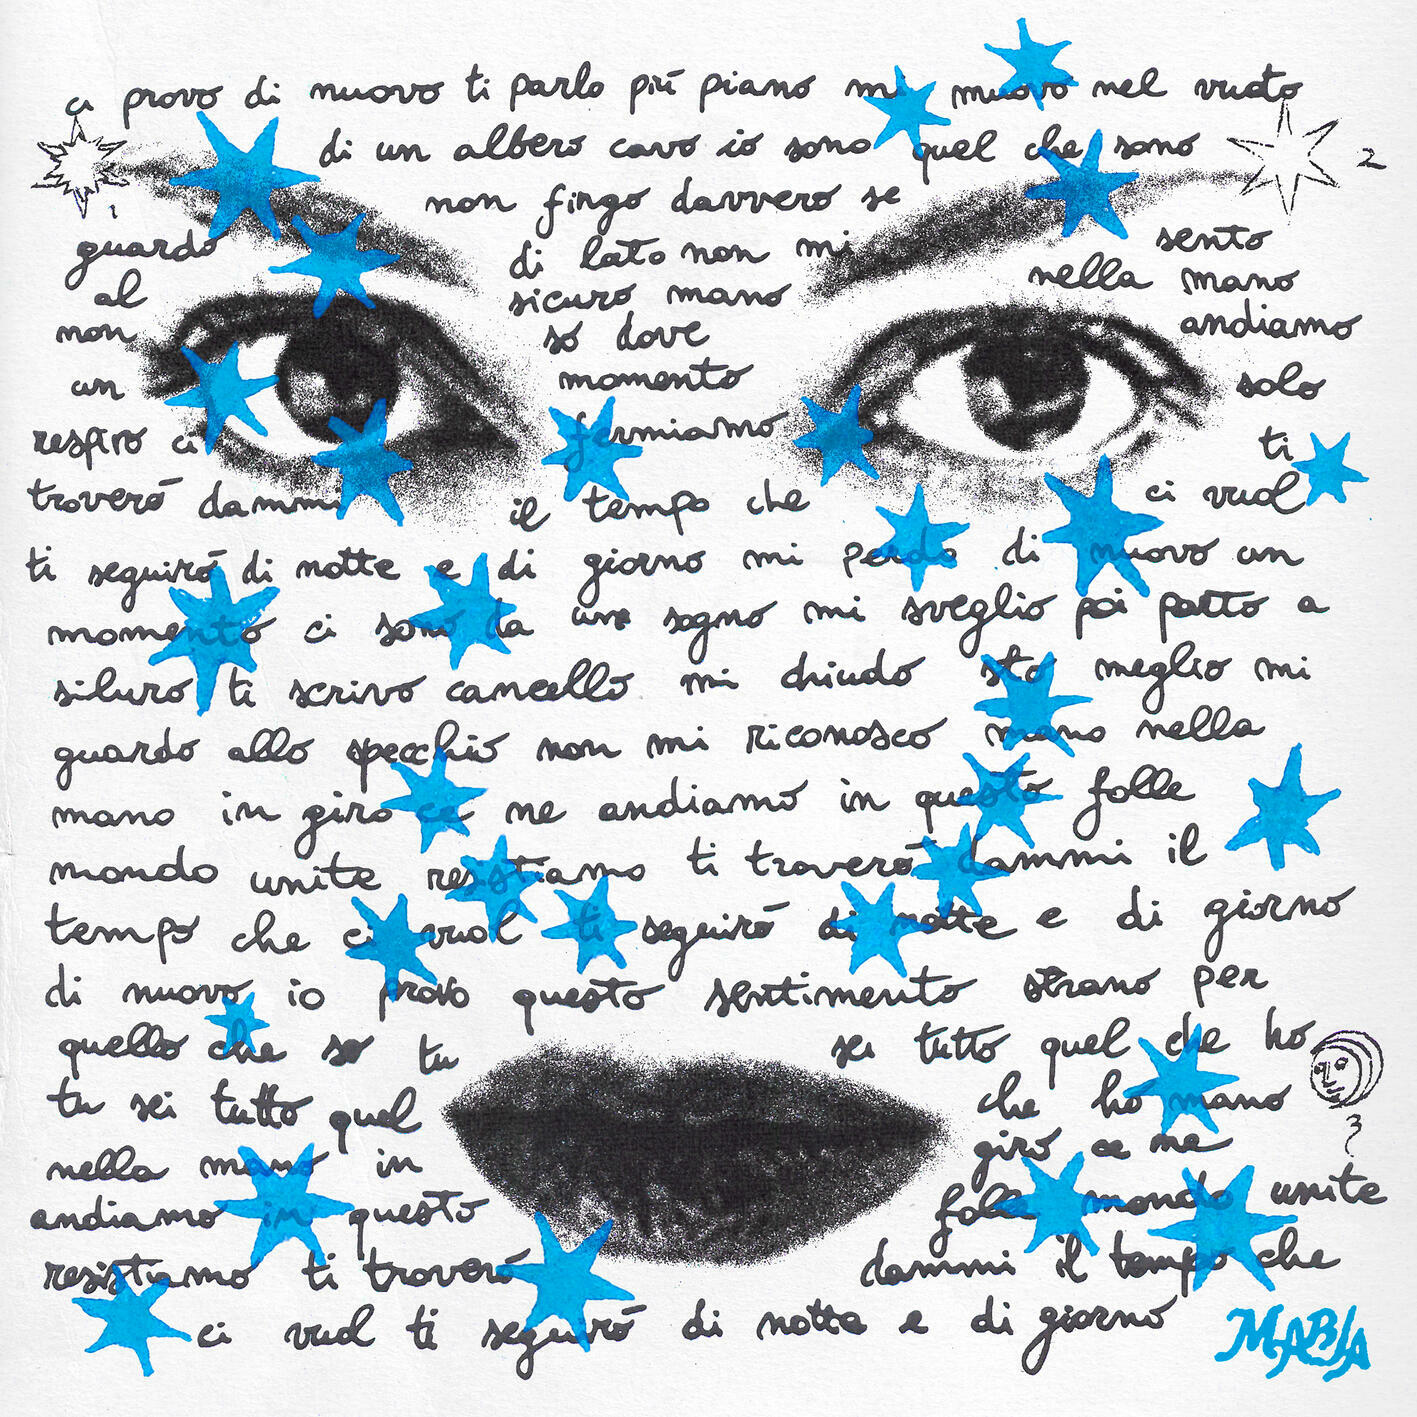 ci provo di nuovo ti parlo piú piano mi muovo nel vuoto
di un albero cavo io sono quel che sono
non fingo davvero se
guardo di lato non mi sento
al sicuro mano nella mano
non so dove andiamo
un momento solo
respiro ci fermiamo ti
troveró dammi il tempo che ci vuol
ti seguiró di notte e di giorno mi perdo di nuovo un
momento ci sono da un sogno mi sveglio poi parto a
siluro ti scrivo cancello mi chiudo sto meglio mi
guardo allo specchio non mi riconosco mano nella
mano in giro ce ne andiamo in questo folle
mondo unite resistiamo ti troveró dammi il
tempo che ci vuol ti seguiró di notte e di giorno
di nuovo io provo questo sentimento strano per
quello che so tu sei tutto quel che ho
tu sei tutto quel che ho mano
nella mano in giro ce ne
andiamo in questo folle mondo unite
resistiamo ti troveró dammi il tempo che
ci vuol ti seguiró di notte e di giorno
1
2
3
MABIA